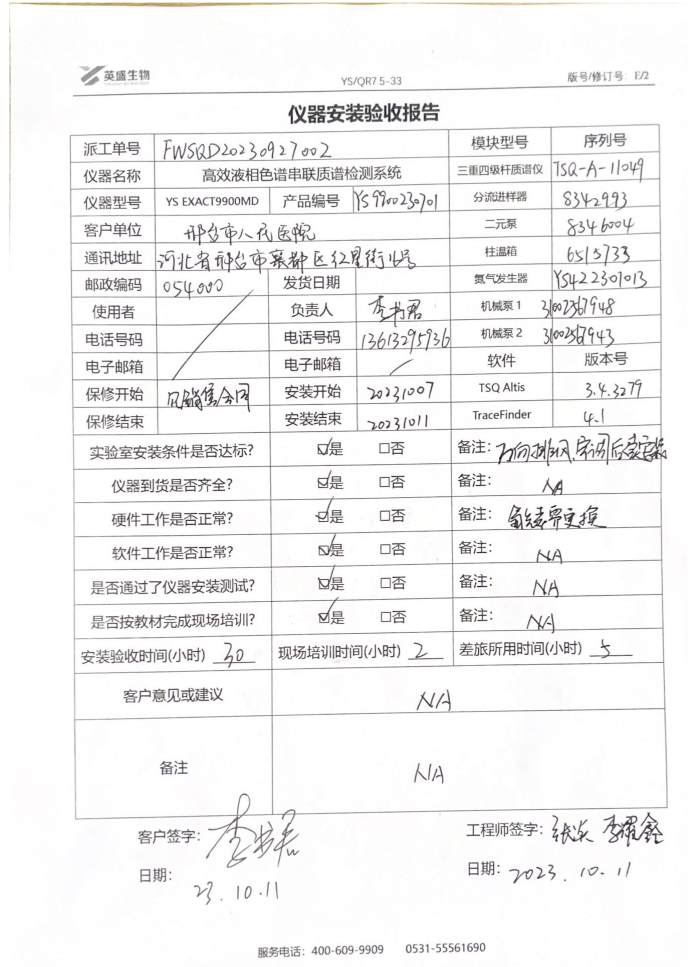 英盛生物
YS/QR7.5-33
版号/修订号: E/2
仪器安装验收报告
派工单号 FWSQD20230927002 模块型号 序列号
仪器名称 高效液相色谱串联质谱检测系统 三重四级杆质谱仪 TSQ-A-11049
仪器型号 YS EXACT9900MD 产品编号 YS9900230701 分流进样器 8342993
客户单位 邢台市人民医院 二元泵 8346004
通讯地址 河北省邢台市襄都区红星街16号 柱温箱 6515733
邮政编码 054000 发货日期 氮气发生器 YS422301013
使用者 负责人 李书君 机械泵 1 31002567948
电话号码 电话号码 13613295936 机械泵 2 31002567943
电子邮箱 电子邮箱 软件 版本号
保修开始 见销售合同 安装开始 20231007 TSQ Altis 3.4.3279
保修结束 安装结束 20231011 TraceFinder 4.1
实验室安装条件是否达标? ☑是 □否 备注:
仪器到货是否齐全? ☑是 □否 备注: NA
硬件工作是否正常? ☑是 □否 备注: 需更换
软件工作是否正常? ☑是 □否 备注: NA
是否通过了仪器安装测试? ☑是 □否 备注: NA
是否按教材完成现场培训? ☑是 □否 备注: NA
安装验收时间(小时) 30 现场培训时间(小时) 2 差旅所用时间(小时) 5
客户意见或建议 N/A
备注 N/A
客户签字: 李书君 工程师签字: 李耀鑫
日期: 23.10.11 日期: 2023.10.11
服务电话: 400-609-9909 0531-55561690